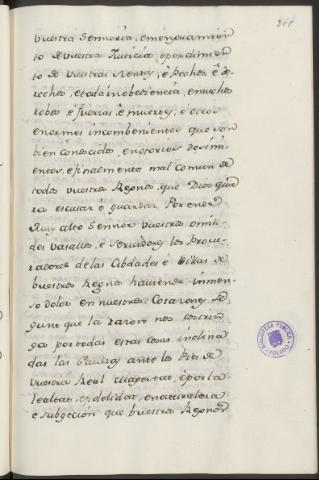 vuestra Sennoria, em
to de vuestra Justicia e perdimien
to de vuestras Rentas, é Pechos, é de
rechos, etoda inobediencia, emuchos
robos é fuerzas é muertes, é otros
enormes incombenientes que son
bien conocidos, enotorios
, efinalmente mal comun de
todos vuestros Regnos, que Dios quie
ra escusar é guardar. Por ende
Muy alto Sennor vuestros omill
des vasallos, é servidores los Procu
radores de las Cibdades é Villas de
buestros Regnos haviendo inmen
so dolor en nuestros Corazones, Se
gunt que la razon nos costrin
ga por todas estas cosas inclina
das las ante los Pies de
vuestra Real Magestat, é por la
lealtat, efidelidat, enaturaleza
e subgeccion que buestros Regnos
BIBLIOTECA PUBLICA
TOLEDO